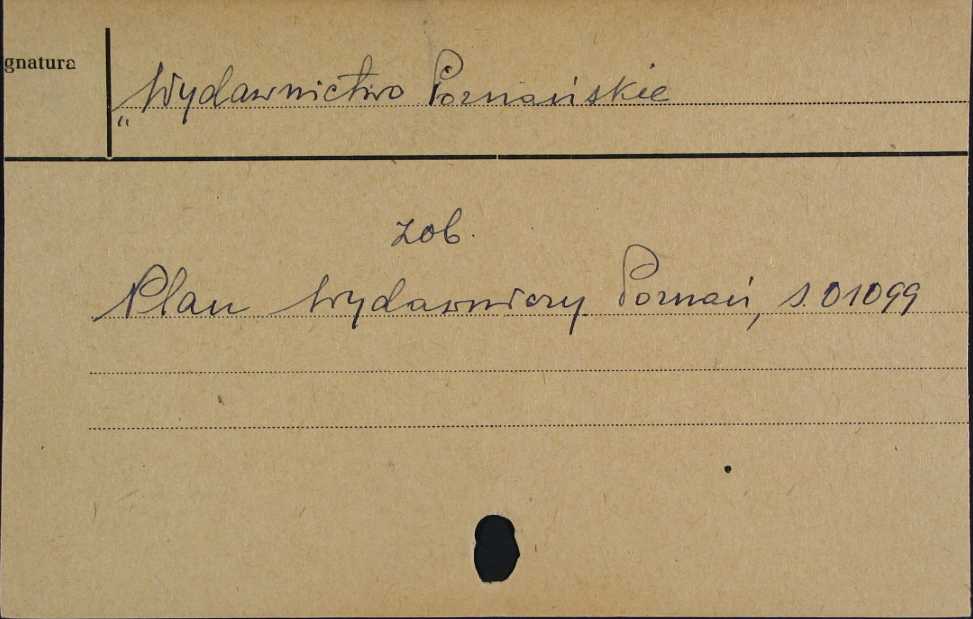 gnatura
Wydawnictwo Poznańskie
"
zob.
Plan Wydawniczy Poznań, s.01099